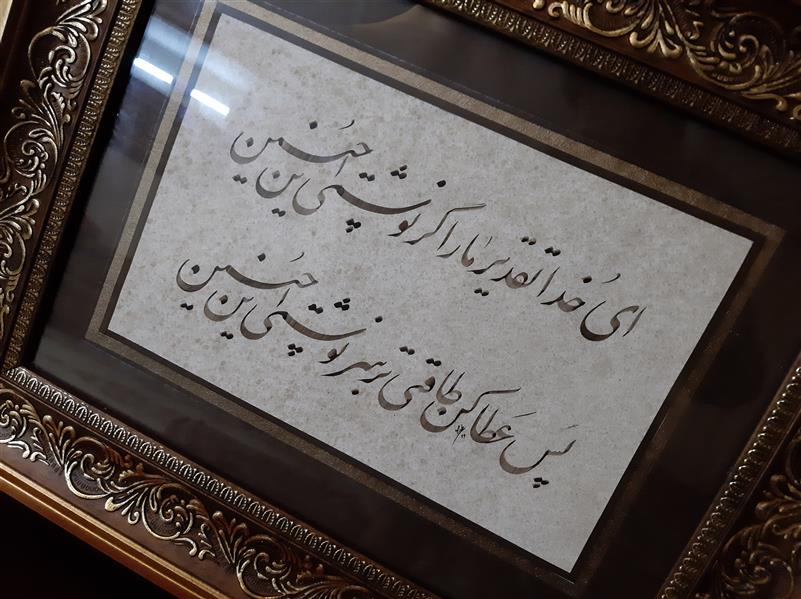 ای خُدا تقدیر ما را گر نوشتی این چُنین
پَس عَطا کن طاقتی بر بهر نوشتی این چُنین